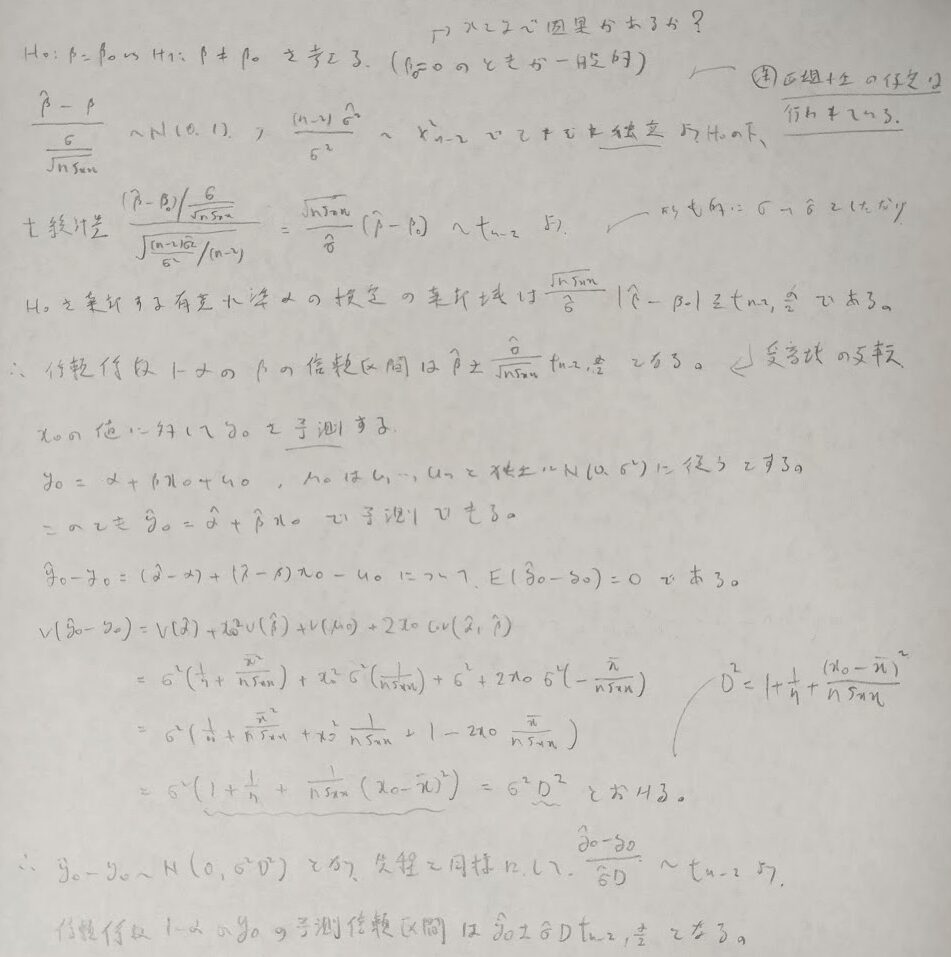 → xとyで因果があるか?
H₀: β = β₀ vs H₁: β ≠ β₀ を考える. (β₀=0 のときが一般的)
㊟ 正規性の仮定は
行われている.
(β̂ - β)/(σ/√(nSxx)) ~ N(0, 1), (n-2)σ̂²/σ² ~ χ²n-2 でこれを独立 よりH₀の下,
t 統計量 ((β̂ - β₀)/(σ/√(nSxx)))/√(((n-2)σ̂²/σ²)/(n-2)) = (√(nSxx)/σ̂)(β̂ - β₀) ~ tn-2 より. σ→σ̂ としただけ
H₀を棄却する有意水準αの検定の棄却域は (√(nSxx)/σ̂)|β̂ - β₀| ≧ tn-2, α/2 である。
∴ 信頼係数 1-α の β の信頼区間は β̂ ± (σ̂/√(nSxx)) tn-2, α/2 となる。 受容域の
x₀の値に対して y₀ を予測する
y₀ = α + βx₀ + u₀ , u₀ は u₁, …, uₙ と独立に N(0, σ²) に従うとする。
このとき ŷ₀ = α̂ + β̂x₀ で予測できる。
ŷ₀ - y₀ = (α̂ - α) + (β̂ - β)x₀ - u₀ について, E(ŷ₀ - y₀) = 0 である。
V(ŷ₀ - y₀) = V(α̂) + x₀²V(β̂) + V(u₀) + 2x₀ Cov(α̂, β̂)
= σ²(1/n + x̄²/(nSxx)) + x₀²σ²(1/(nSxx)) + σ² + 2x₀σ²(-x̄/(nSxx))
D² = 1 + 1/n + (x₀ - x̄)²/(nSxx)
= σ²(1/n + x̄²/(nSxx) + x₀² 1/(nSxx) + 1 - 2x₀ x̄/(nSxx))
= σ²(1 + 1/n + 1/(nSxx) (x₀ - x̄)²) = σ²D² とおける。
∴ ŷ₀ - y₀ ~ N(0, σ²D²) となり, 先程と同様にして. (ŷ₀ - y₀)/(σ̂D) ~ tn-2 より.
信頼係数 1-α の y₀ の予測信頼区間は ŷ₀ ± σ̂D tn-2, α/2 となる。